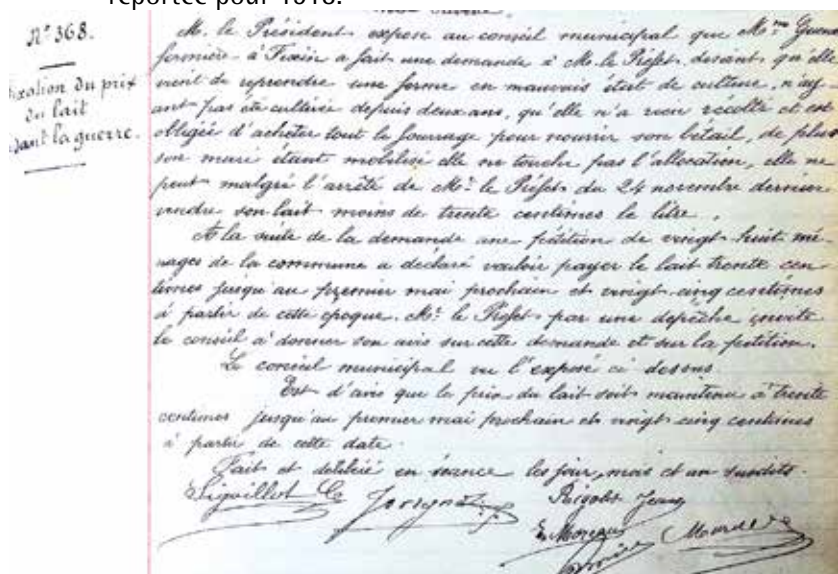 reportée pour 1916.
N° 368.
Fixation du prix
du lait
dant la guerre.
M. le Président expose au conseil municipal que Mme
fermière à Fixin a fait une demande à M. le Préfet disant qu'elle
vient de reprendre une ferme en mauvais état de culture, n'ay
ant pas été cultivée depuis deux ans, qu'elle n'a rien recolté et est
obligée d'acheter tout le fourrage pour nourrir son bétail, de plus
son mari étant mobilisé elle ne touche pas l'allocation, elle ne
peut malgré l'arrêté de Mr le Préfet du 24 novembre dernier
vendre son lait moins de trente centimes le litre.
A la suite de la demande une pétition de vingt huit mé
nages de la commune a déclaré vouloir payer le lait trente cen
times jusqu'au premier mai prochain et vingt cinq centimes
à partir de cette époque. Mr le Préfet par une dépêche invite
le conseil à donner son avis sur cette demande et sur la pétition.
Le conseil municipal vu l'exposé ci dessus
Est d'avis que le prix du lait soit maintenu à trente
centimes jusqu'au premier mai prochain et vingt cinq centimes
à partir de cette date.
Fait et délibéré en séance les jour, mois et an susdits.
Rigolet Jean
Moreau